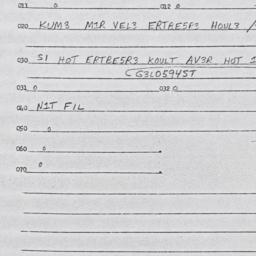 011 0 012 0
020 KUM3 MIR VEL3 ERTRESR3 HOUL3 /
030 SI HOT ERTRESR3 KOULT AV3R HOT I
G3LO594ST
031 0 032 0
040 NIT FIL
050 0
060 0
070 0